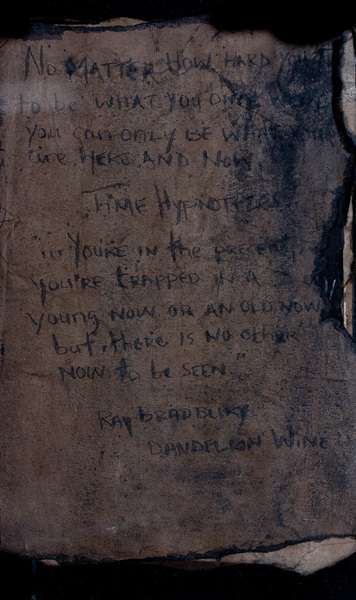 No MATTER HOW HARD YOU TRY
to be WHAT YOU ONCE WERE
YOU CAN ONLY BE WHAT YOU
are HERE AND NOW.
TIME HYPNOTIZES
"... YOU'RE in the present,
you're trapped IN A
young NOW OR AN OLD NOW
but there is NO other
NOW to be SEEN."
RAY BRADBURY
DANDELION WINE